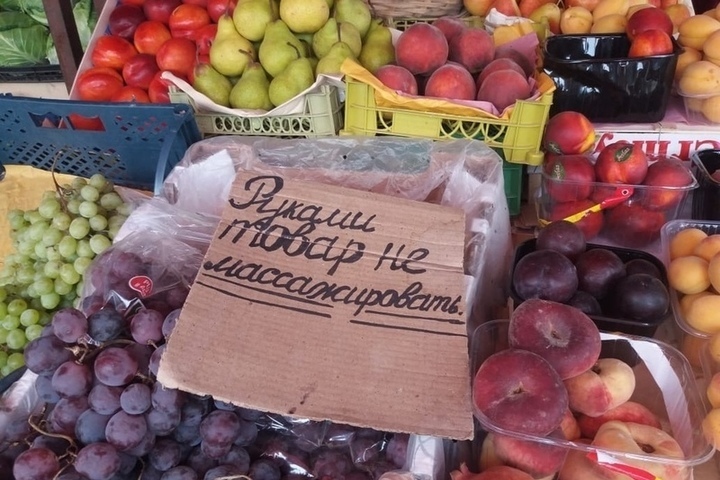 Руками
товар не
массажировать.